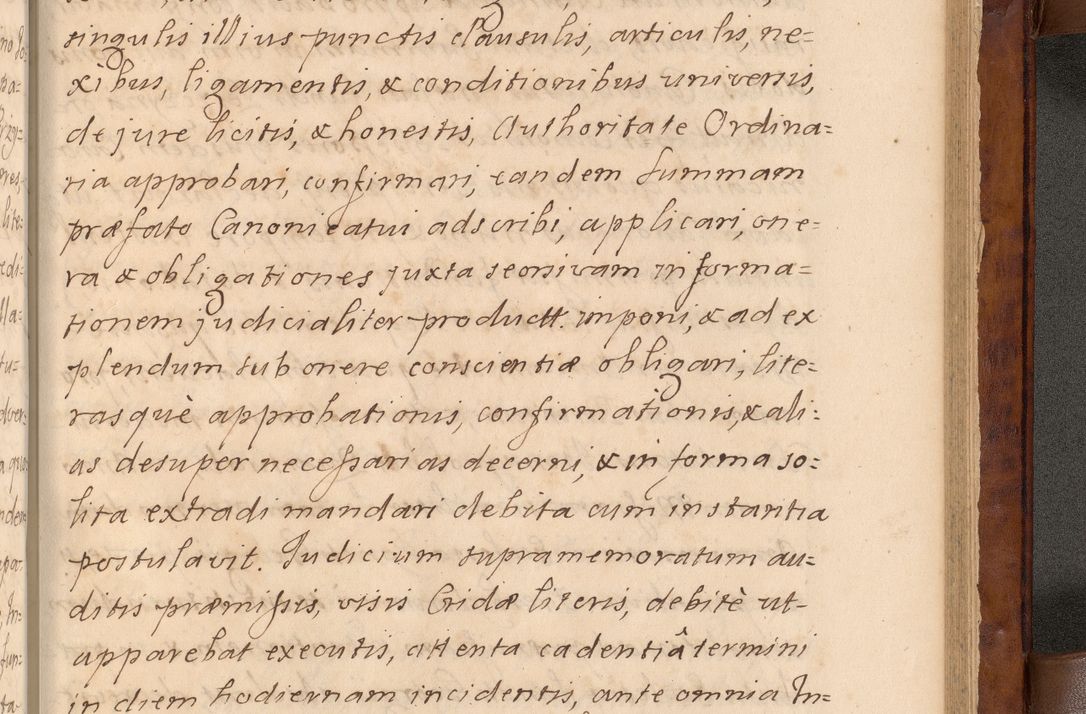 singulis illius punctis clausulis, articulis, ne=
xibus, ligamentis, & conditionibus universis,
de jure licitis, & honestis, Authoritate Ordina=
ria approbari, confirmari, eandem summam
præfato Canonicatui adscribi, applicari, one=
ra & obligationes juxta seorsivam informa=
tionem judicialiter productt. imponi, & ad ex
plendum sub onere conscientiæ obligari, lite=
rasquè approbationis, confirmationis, & ali=
as desuper necessarias decerni, & in forma so=
lita extradi mandari debita cum instantia
postulavit. Judicium supramemoratum au=
ditis præmissis, visis Cridæ literis, debitè ut-
apparebat executis, attenta cadentiâ termini
in diem hodiernam incidentis, ante omnia In=